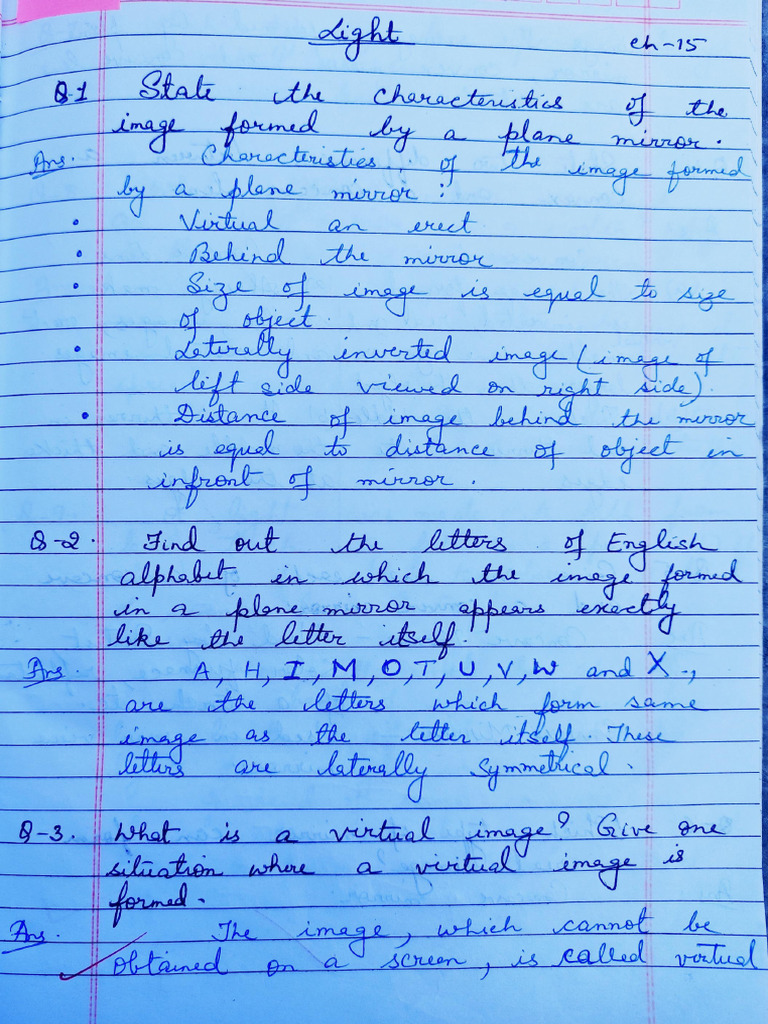 Light
ch-15
Q1 State the characteristics of the
image formed by a plane mirror.
Ans. Characteristics of the image formed
by a plane mirror:
• Virtual an erect
• Behind the mirror
• Size of image is equal to size
of object.
• Laterally inverted image (image of
left side viewed on right side).
• Distance of image behind the mirror
is equal to distance of object in
infront of mirror.
Q-2. Find out the letters of English
alphabet in which the image formed
in a plane mirror appears exactly
like the letter itself.
Ans A, H, I, M, O, T, U, V, W and X.,
are the letters which form same
image as the letter itself. These
letters are laterally symmetrical.
Q-3. What is a virtual image? Give one
situation where a virtual image is
formed.
Ans. The image, which cannot be
obtained on a screen, is called virtual